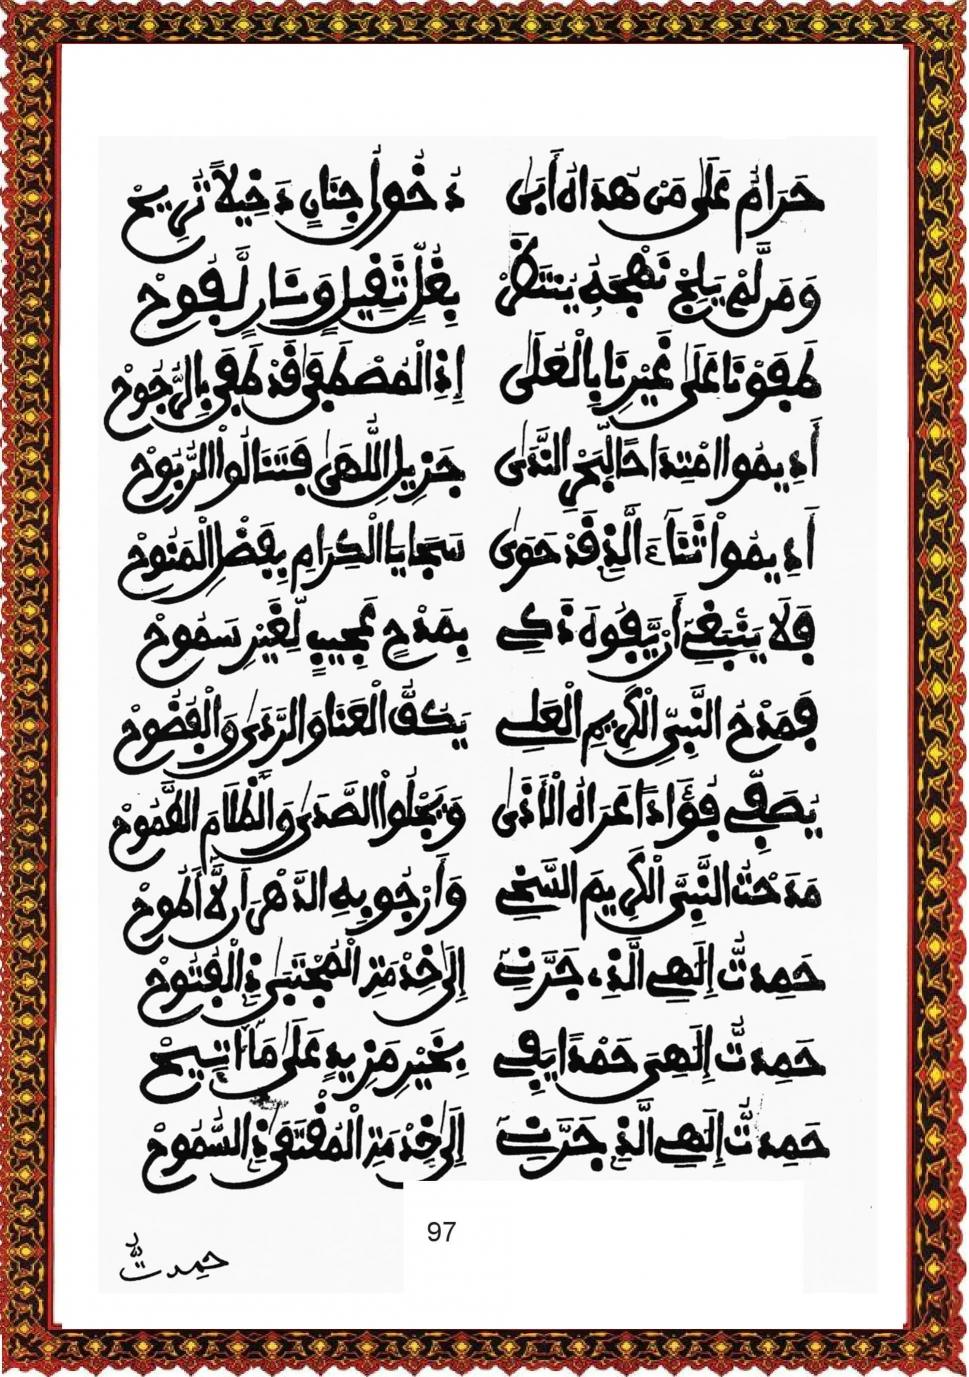 حَرَامٌ عَلَى مَن هُدَاهُ أَبَى دُخُولُ جِنَانٍ دَخِيلًا تُرِيحْ
وَمَن لَّمْ يَلِجْ نَهْجَهُ يَنتَظِرْ بِغُلٍّ ثَقِيلٍ وَنَارٍ لَّفُوحْ
طَفَوْنَا عَلَى غَيْرِنَا بِالْعُلَى إِذِ الْمُصْطَفَى قَدْ طَفَى بِالرُّجُوحْ
أَدِيمُوا امْتِدَاحًا لِّبَحْرِ النَّدَى جَزِيلِ اللُّهَى فَتَنَالُوا الرُّبُوحْ
أَدِيمُوا ثَنَاءَ الَّذِي قَدْ حَوَى سَجَايَا الْكِرَامِ بِفَضْلِ الْمَنُوحْ
فَلَا يَنبَغِي أَن يَّفُوهَ ذَكِي بِمَدْحٍ عَجِيبٍ لِّغَيْرِ سَمُوحْ
فَمَدْحُ النَّبِيِّ الْكَرِيمِ الْعَلِي يَكُفُّ الْعَنَا وَالرَّدَى وَالْفُضُوحْ
يُصَفِّي فُؤَادًا عَرَاهُ الْأَذَى وَيَجْلُوا الصَّدَى وَالظَّلَامَ الْغَمُوحْ
مَدَحْتُ النَّبِيَّ الْكَرِيمَ السَّخِي وَأَرْجُو بِهِ الدَّهْرَ أَن لَّا أَطُوحْ
حَمِدتُّ إِلَهِي الَّذِي جَرَّنِي إِلَى خِدْمَتِي الْمُجْتَبَى ذِي الْفُتُوحْ
حَمِدتُّ إِلَهِيَ حَمْدًا يَفِي بِخَيْرٍ مَزِيدٍ عَلَى مَا أُتِيحْ
حَمِدتُّ إِلَهِي الَّذِي جَرَّنِي إِلَى خِدْمَتِي الْمُقْتَفَى ذِي السُّمُوحْ
97
حمدتُّ